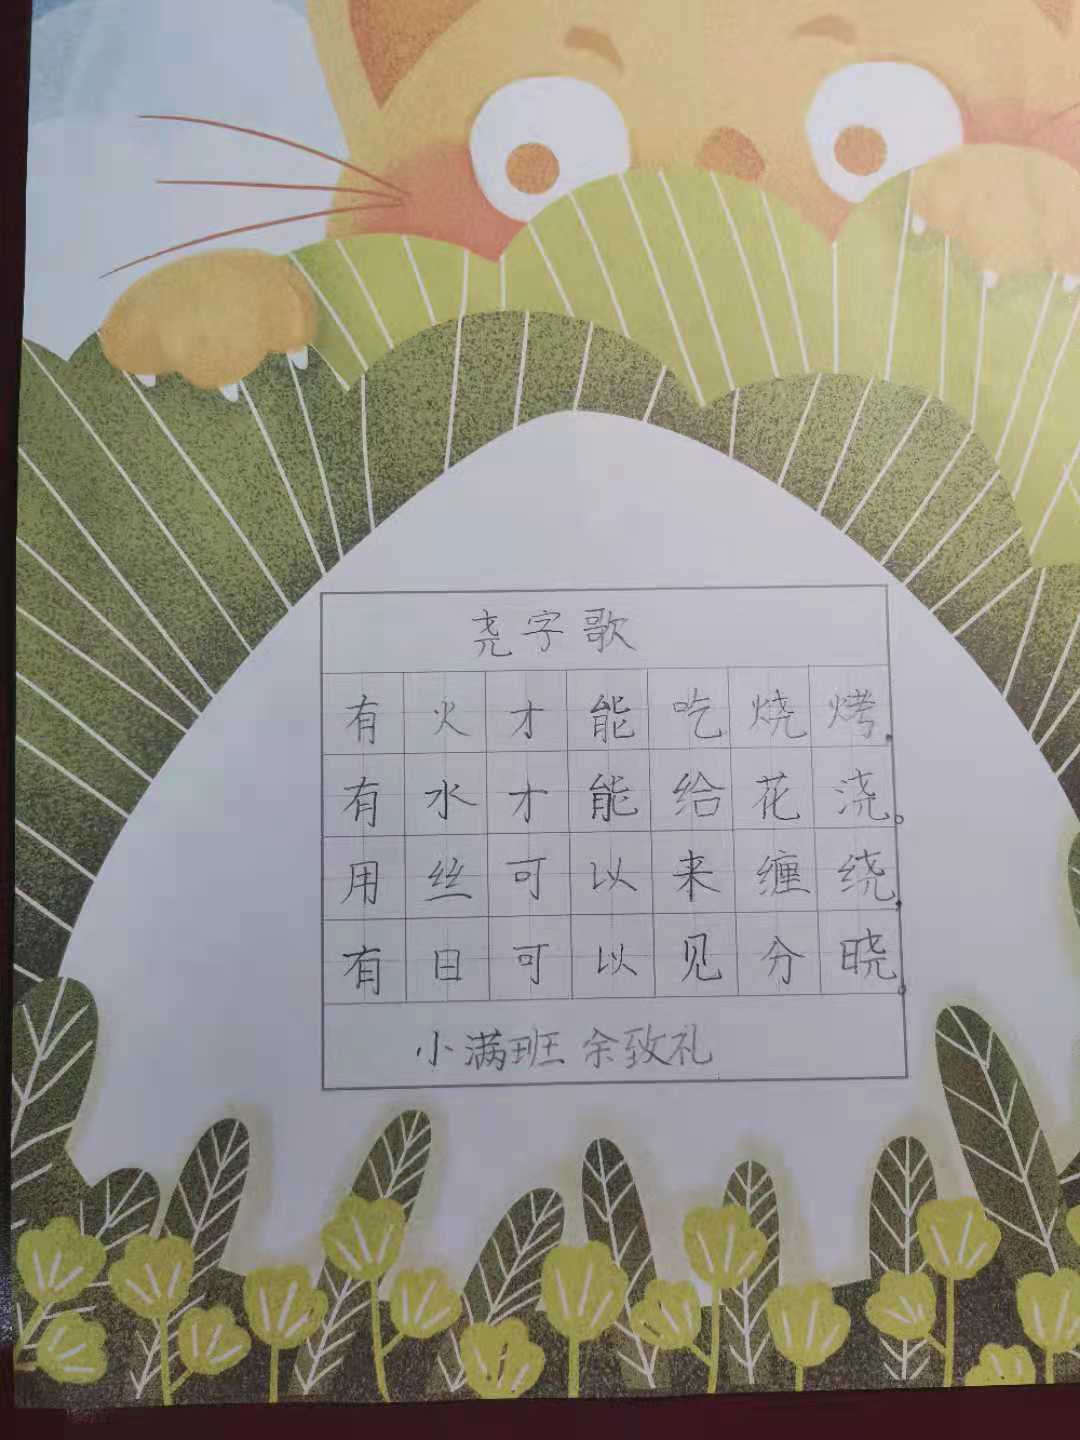 尧字歌
有火才能吃烧烤，
有水才能给花浇。
用丝可以来缠绕，
有日可以见分晓。
小满班 余致礼